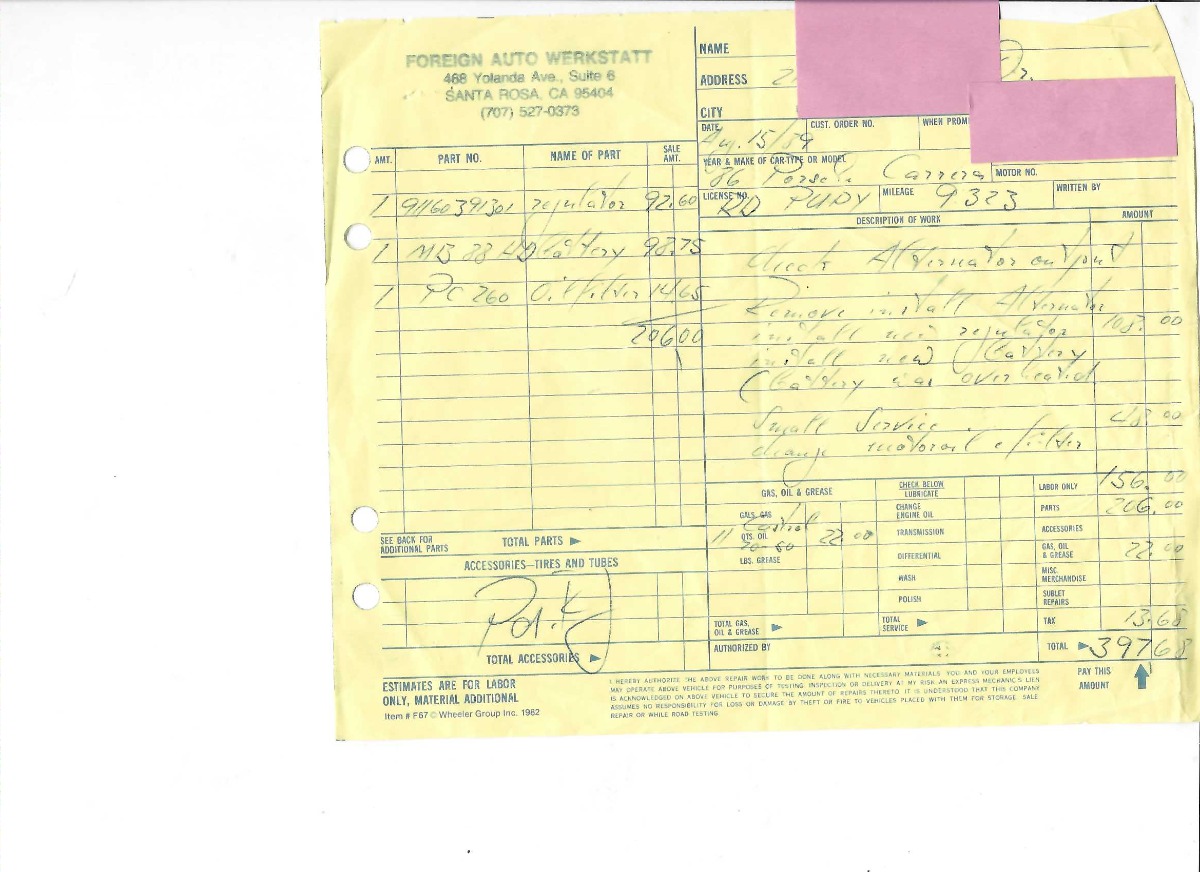 FOREIGN AUTO WERKSTATT
468 Yolanda Ave., Suite 6
SANTA ROSA, CA 95404
(707) 527-0373
NAME
ADDRESS Dr.
CITY
DATE Aug. 15/89 CUST. ORDER NO. WHEN PROMI
YEAR & MAKE OF CAR-TYPE OR MODEL MOTOR NO.
86 Porsche Carrera
LICENSE NO. RD PURY MILEAGE 9323 WRITTEN BY
AMT. PART NO. NAME OF PART SALE AMT.
1 91160391301 regulator 92.60
1 MB 88 HD Battery 98.75
1 PC 260 Oilfilter 14.65
206.00
DESCRIPTION OF WORK AMOUNT
Check Alternator output
Remove install Alternator
install new regulator 108.00
install new Battery
(Battery was overheated
Small Service 48.00
change motoroil & filter
SEE BACK FOR ADDITIONAL PARTS TOTAL PARTS ►
ACCESSORIES—TIRES AND TUBES
TOTAL ACCESSORIES ►
GAS, OIL & GREASE
GALS. GAS
Castrol
11 QTS. OIL 22.00
LBS. GREASE
TOTAL GAS, OIL & GREASE ►
CHECK BELOW
LUBRICATE
CHANGE ENGINE OIL
TRANSMISSION
DIFFERENTIAL
WASH
POLISH
TOTAL SERVICE ►
LABOR ONLY 156.00
PARTS 206.00
ACCESSORIES
GAS, OIL & GREASE 22.00
MISC. MERCHANDISE
SUBLET REPAIRS
TAX 13.68
AUTHORIZED BY TOTAL ► 397.68
PAY THIS AMOUNT
ESTIMATES ARE FOR LABOR
ONLY, MATERIAL ADDITIONAL
Item # F67 © Wheeler Group Inc. 1982
I HEREBY AUTHORIZE THE ABOVE REPAIR WORK TO BE DONE ALONG WITH NECESSARY MATERIALS. YOU AND YOUR EMPLOYEES
MAY OPERATE ABOVE VEHICLE FOR PURPOSES OF TESTING, INSPECTION OR DELIVERY AT MY RISK. AN EXPRESS MECHANIC'S LIEN
IS ACKNOWLEDGED ON ABOVE VEHICLE TO SECURE THE AMOUNT OF REPAIRS THERETO. IT IS UNDERSTOOD THAT THIS COMPANY
ASSUMES NO RESPONSIBILITY FOR LOSS OR DAMAGE BY THEFT OR FIRE TO VEHICLES PLACED WITH THEM FOR STORAGE, SALE
REPAIR OR WHILE ROAD TESTING.